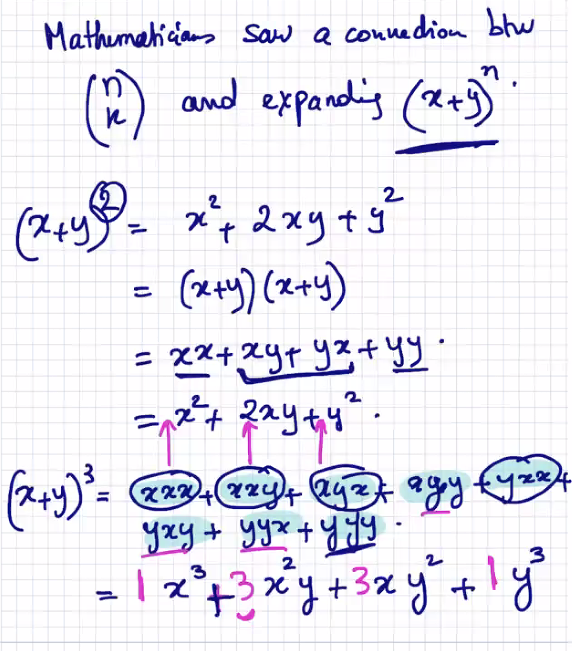 Mathematicians saw a connection btw
(n k) and expanding (x+y)^n.
(x+y)^2 = x^2 + 2xy + y^2
= (x+y)(x+y)
= xx + xy + yx + yy.
= x^2 + 2xy + y^2.
(x+y)^3 = xxx + xxy + xyx + xyy + yxx +
yxy + yyx + yyy.
= 1 x^3 + 3 x^2 y + 3 x y^2 + 1 y^3